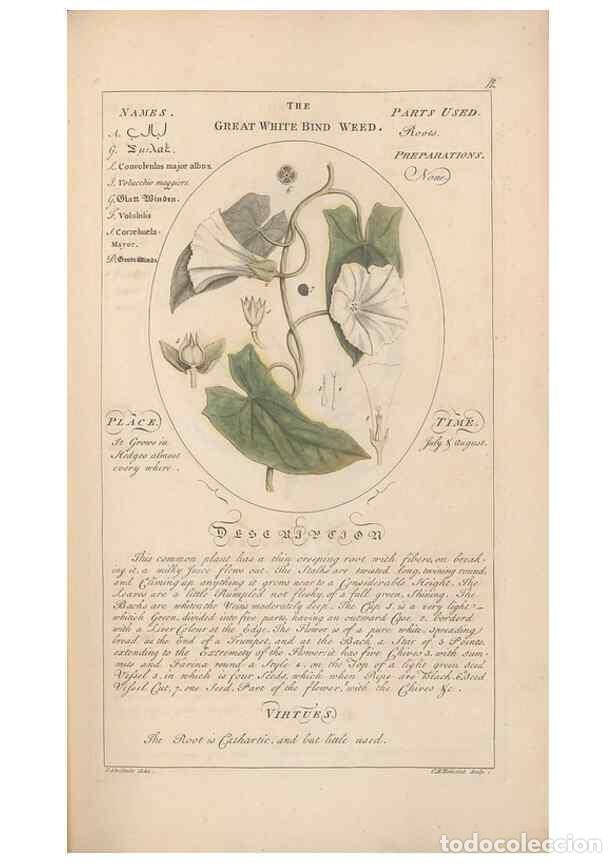 Pl.
NAMES.
A.
G.
L. Convolvulus major albus.
I. Viluechio maggiore.
G. Glatt Winden.
F. Volubilis
S. Correhuela-
Mayor.
D. Groote Winde.
THE
GREAT WHITE BIND WEED.
PARTS USED.
Roots.
PREPARATIONS.
None.
6
7
PLACE.
It Grows in
Hedges almost
every where.
TIME.
July & August.
DESCRIPTION
This common plant has a thin creeping root with fibers, on break-
ing it, a milky Juice flows out. the Stalks are twisted long, twining round,
and Climing up anything it grows near to a Considerable Height. The
Leaves are a little Rumpled not fleshy, of a full green, Shining. The
Backs are whiter, the Veins moderately deep. The Cup 1. is a very light
whitish Green, divided into five parts, having an outward Case 2. borderd
with a Liver Colour at the Edge. The Flower is of a pure white, spreading
broad as the End of a Trumpet, and at the Back a Star of 5 Points,
extending to the Extremety of the Flower; it has five Chives 3. with sum-
mits and Farina round a Style 4. on the Top of a light green seed
Vessel 5. in which is four Seeds, which when Ripe are Black. 6. Seed
Vessel Cut, 7. one Seed. Part of the flower, with the Chives &c.
VIRTUES.
The Root is Cathartic, and but little used.
delin.
sculp.
todocoleccion